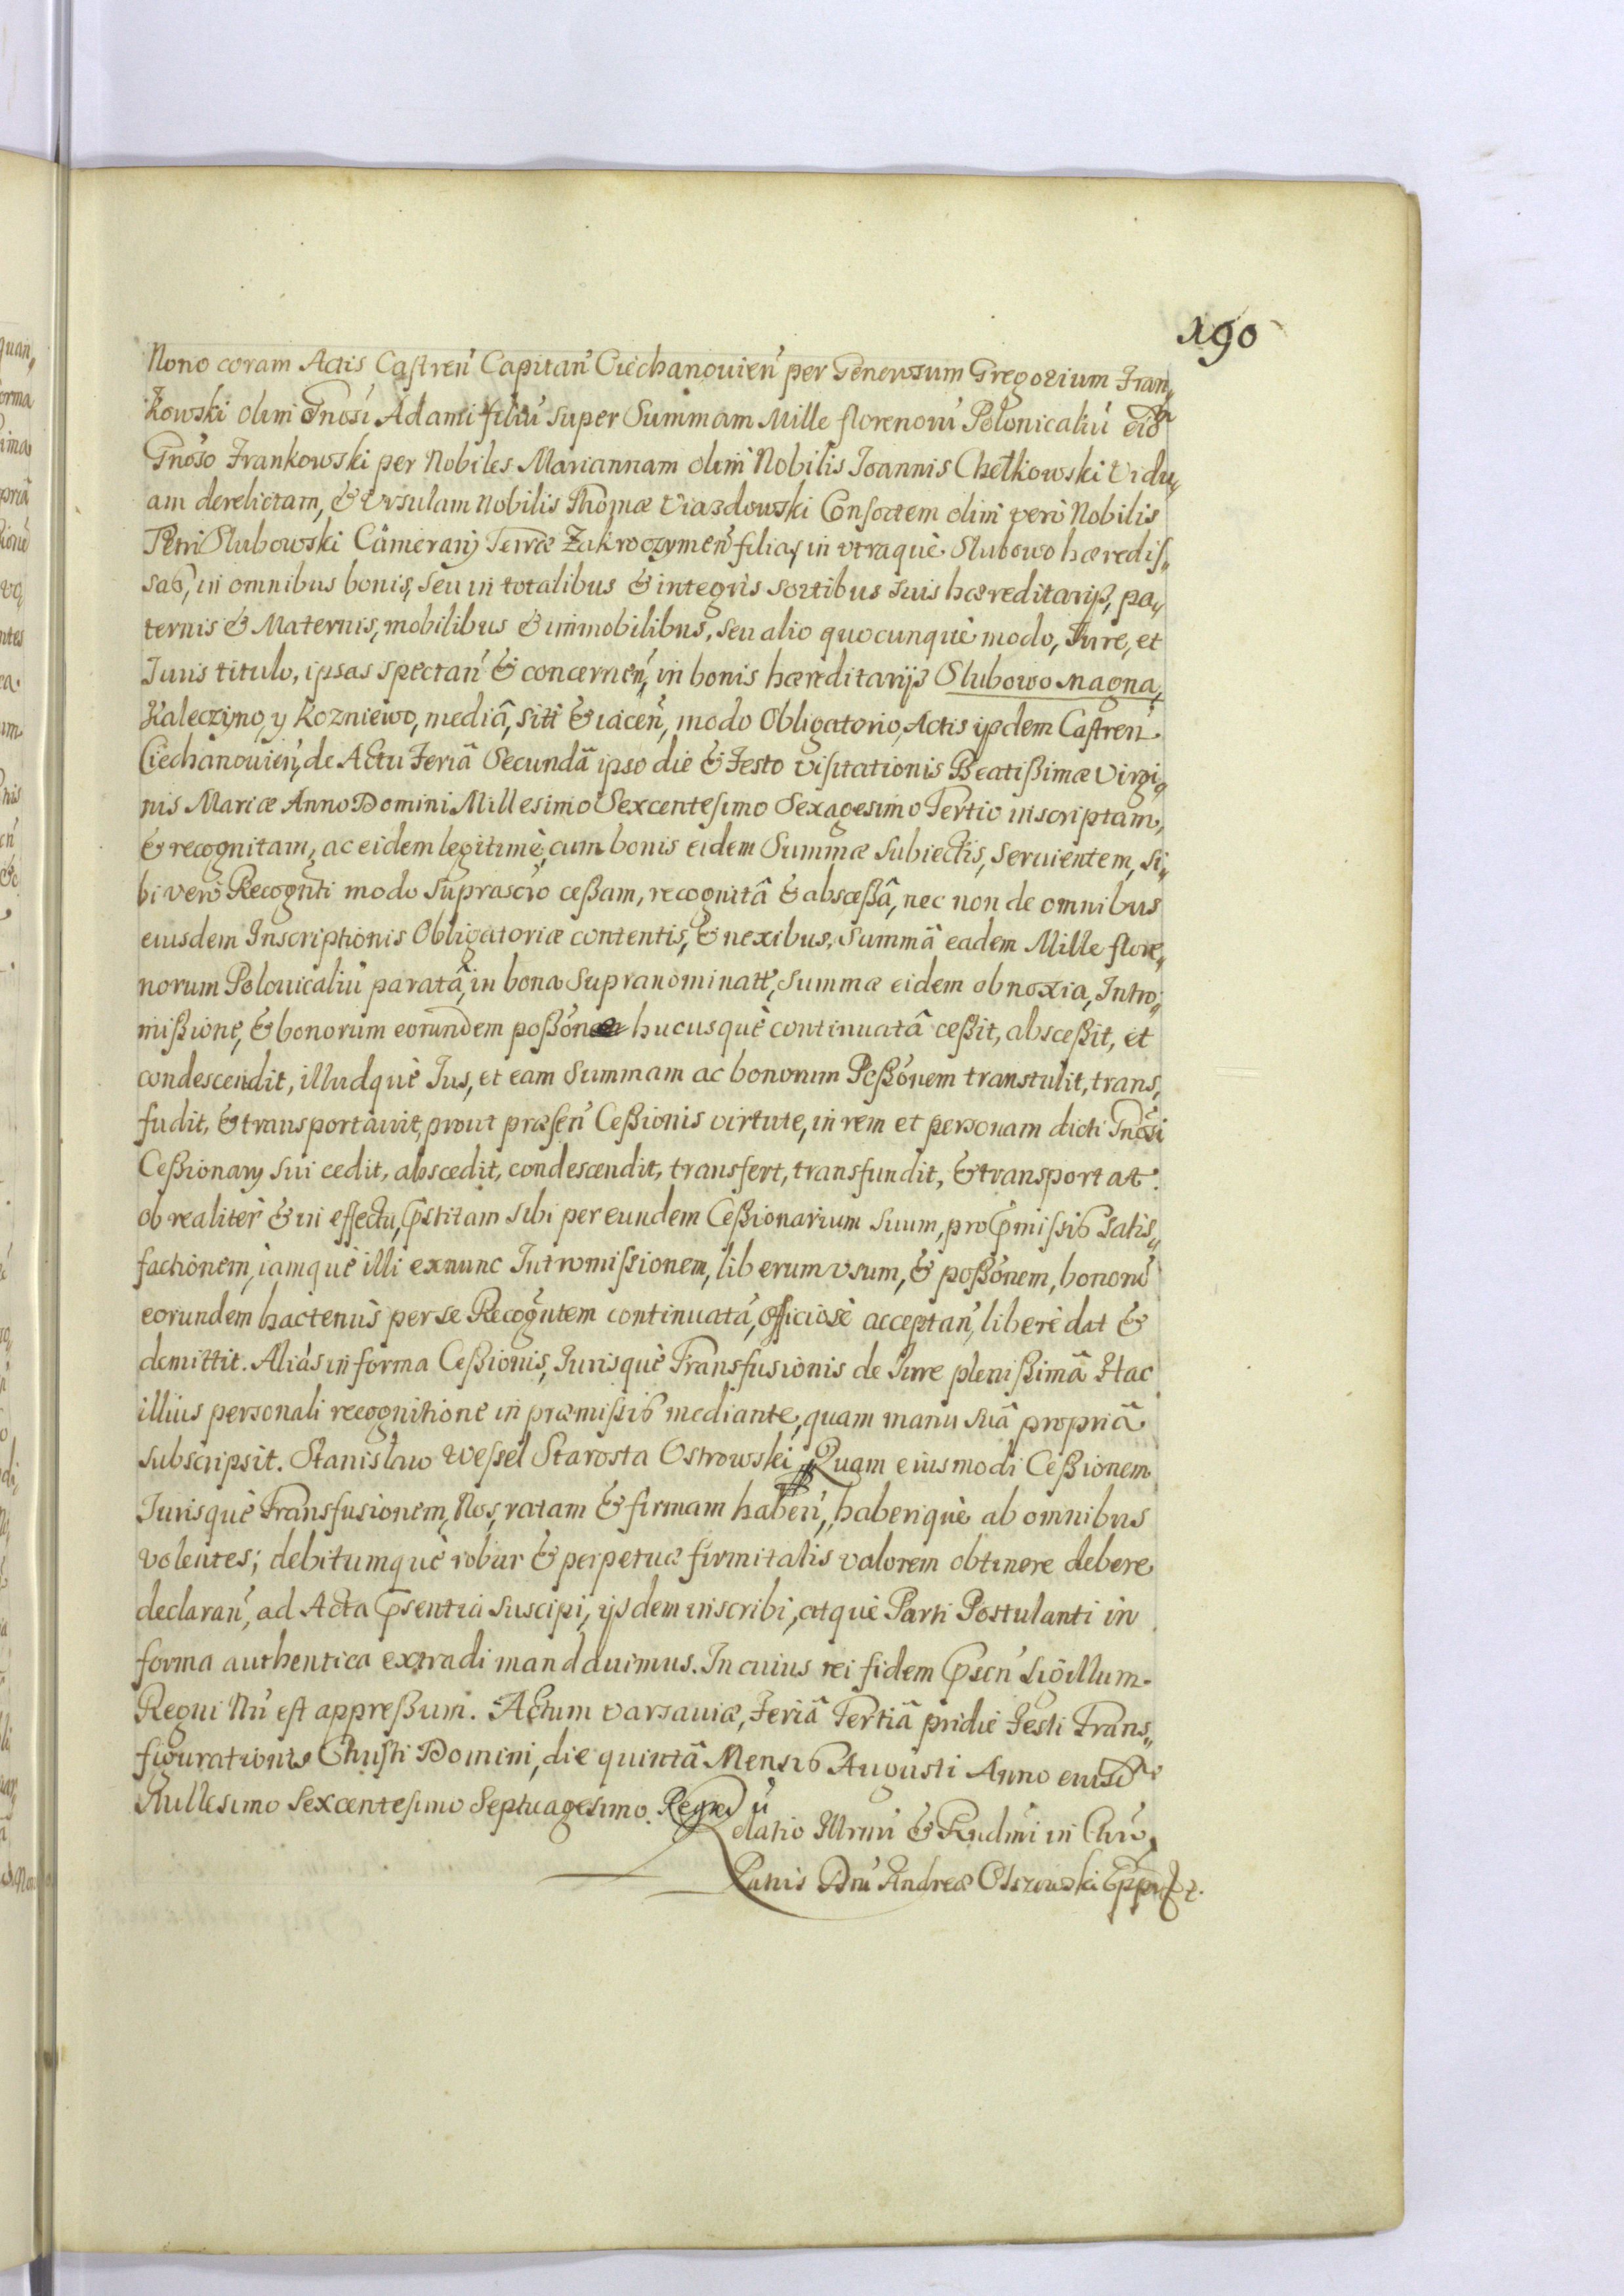 190
Nono coram Actis Castren̄ Capitan̄ Ciechanouien̄ per Generosum Gregorium Fran„
kowski olim Gnosi Adami filiū super Summam Mille florenorū Polonicaliū
Gnoso Frankowski per Nobiles Mariannam olim Nobilis Ioannis Chełkowski Vidu„
am derelictam, & Vrsulam Nobilis Thomæ Viazdowski Consortem olim vero Nobilis
Petri Slubowski Camerarij Terræ Zakroczymen̄ filias in vtraquè Slubowo hæredis„
sas, in omnibus bonis, seu in totalibus & integris sortibus suis hæreditarijs, pa„
ternis & Maternis, mobilibus & immobilibus, seu alio quocunquè modo, Iure, et
Iuris titulo, ipsas spectan̄ & concernen̄, in bonis hæreditarijs Slubowo Magna,
Kaleczyno, y Kozniewo, mediâ, sitt & iacen̄, modo Obligatorio, Actis ijsdem Castren̄
Ciechanouien̄, de Actu Feriâ Secundâ ipso die & Festo Visitationis Beatißimæ Virgi„
nis Mariæ Anno Domini Millesimo Sexcentesimo Sexagesimo Tertio inscriptam,
& recognitam, ac eidem legitimè, cum bonis eidem Summæ subiectis, seruientem, si„
bi vero Recognti modo suprascro ceßam, recognitâ & absceßâ, nec non de omnibus
eiusdem Inscriptionis Obligatoriæ contentis, & nexibus, Summâ eadem Mille flore„
norum Polonicaliū paratâ, in bona supranominatt, summæ eidem obnoxia, Intro„
mißione, & bonorum eorundem poßone hucusquè continuatâ ceßit, absceßit, et
condescendit, illudquè Ius, et eam Summam ac bonorum Poßonem transtulit, trans„
fudit, & transportauit, prout præsen̄ Ceßionis virtute, in rem et personam dicti Gnosi
Ceßionarij sui cedit, abscedit, condescendit, transfert, transfundit, & transportat.
ob realiter & in effectu, p̄stitam sibi per eundem Ceßionarium suum, pro p̄missis satis„
factionem, iamquè illi exnunc Intromissionem, liberum vsum, & poßonem, bonorū
eorundem hactenus per se Recogntem continuatâ, officiosè acceptan̄, liberè dat &
demittit. Aliàs in forma Ceßionis, Iurisquè Transfusionis de Iure plenißimâ Hac
illius personali recognitione in præmissis mediante, quam manu suâ propriâ
subscripsit. Stanisław Wessel Starosta Ostrowski Quam eiusmodi Ceßionem
Iurisquè Transfusionem, Nos, ratam & firmam haben̄, haberiquè ab omnibus
volentes; debitumquè robur & perpetuæ firmitatis valorem obtinere debere
declaran̄, ad Acta p̄sentia suscipi, ijsdem inscribi, atquè Parti Postulanti in
forma authentica extradi mandauimus. In cuius rei fidem p̄sen̄ Sigillum
Regni Nn̄ est appreßum. Actum Varsauiæ, Feriâ Tertiâ pridiè Festi Trans„
figurationis Christi Domini, die quintâ Mensis Augusti Anno
Millesimo Sexcentesimo Septuagesimo.
datio Illrmi & Rndmi in Chro
Patris Dni Andreæ Olszowski